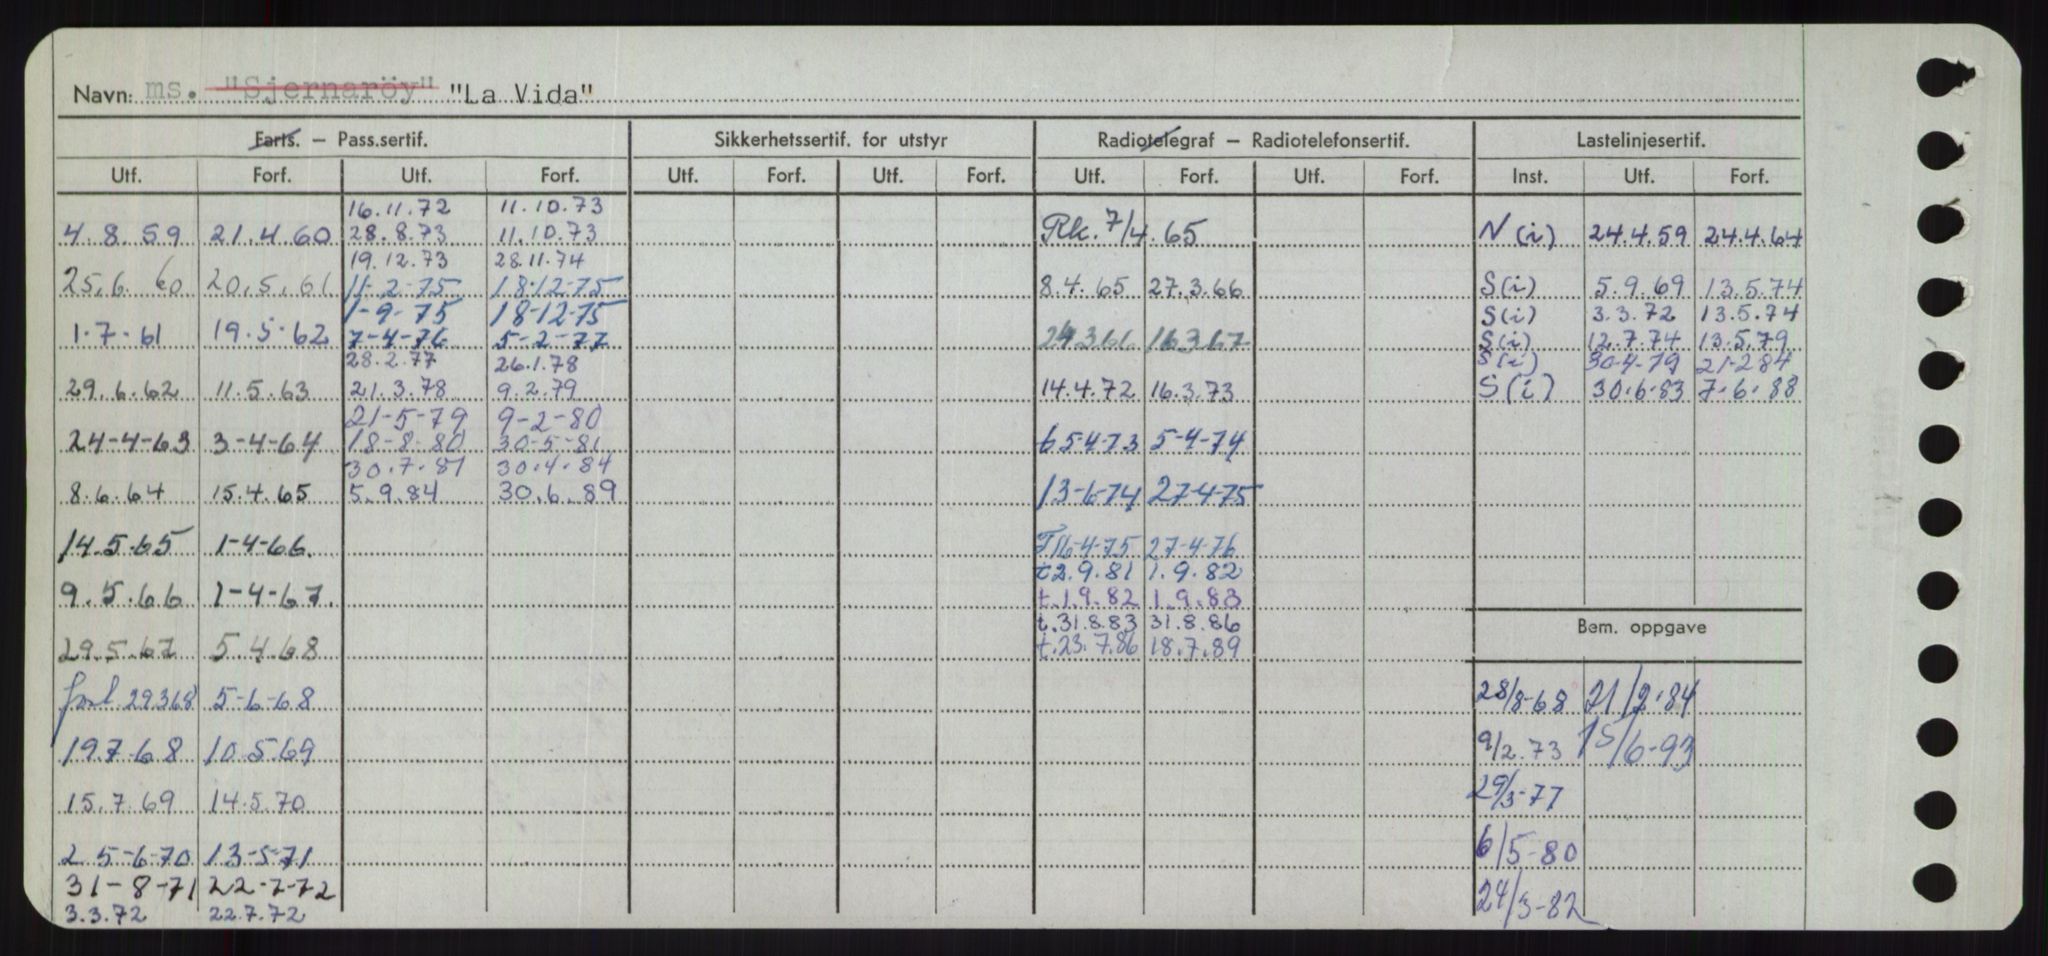 Navn: ms. "Sjernaröy" "La Vida"
Farts. — Pass.sertif. Sikkerhetssertif. for utstyr Radiotelegraf — Radiotelefonsertif. Lastelinjesertif.
Utf. Forf. Utf. Forf. Utf. Forf. Utf. Forf. Utf. Forf. Utf. Forf. Inst. Utf. Forf.
16.11.72 11.10.73
4.8.59 21.4.60 28.8.73 11.10.73 Rk. 7/4.65 N(i) 24.4.59 24.4.64
19.12.73 28.11.74
25.6.60 20.5.61 11-2-75 18-12-75 8.4.65 27.3.66 S(i) 5.9.69 13.5.74
1-9-75 18-12-75 S(i) 3.3.72 13.5.74
1.7.61 19.5.62 7-4-76 5-2-77 24366 16367 S(i) 12.7.74 13.5.79
28.2.77 26.1.78 S(i) 30-4-79 21-2-84
29.6.62 11.5.63 21.3.78 9.2.79 14.4.72 16.3.73 S(i) 30.6.83 7.6.88
21-5-79 9-2-80
24-4-63 3-4-64 18-8-80 30-5-81 5-4-73 5-4-74
30.7.81 30.4.84
8.6.64 15.4.65 5.9.84 30.6.89 13-6-74 27-4-75
14.5.65 1-4-66. T16-4-75 27-4-76
t2.9.81 1.9.82
9.5.66 1-4-67. t.1.9.82 1.9.83
t.31.8.83 31.8.86 Bem. oppgave
29.5.67 5.4.68 t.23.7.86 18.7.89
forl 29368 5-6-68 28/8-68 21/2-84
19.7.68 10.5.69 9/2.73 15/6-93
15.7.69 14.5.70 29/3-77
25-6-70 13-5-71 6/5-80
31-8-71 22-7-72 24/3-82
3.3.72 22.7.72